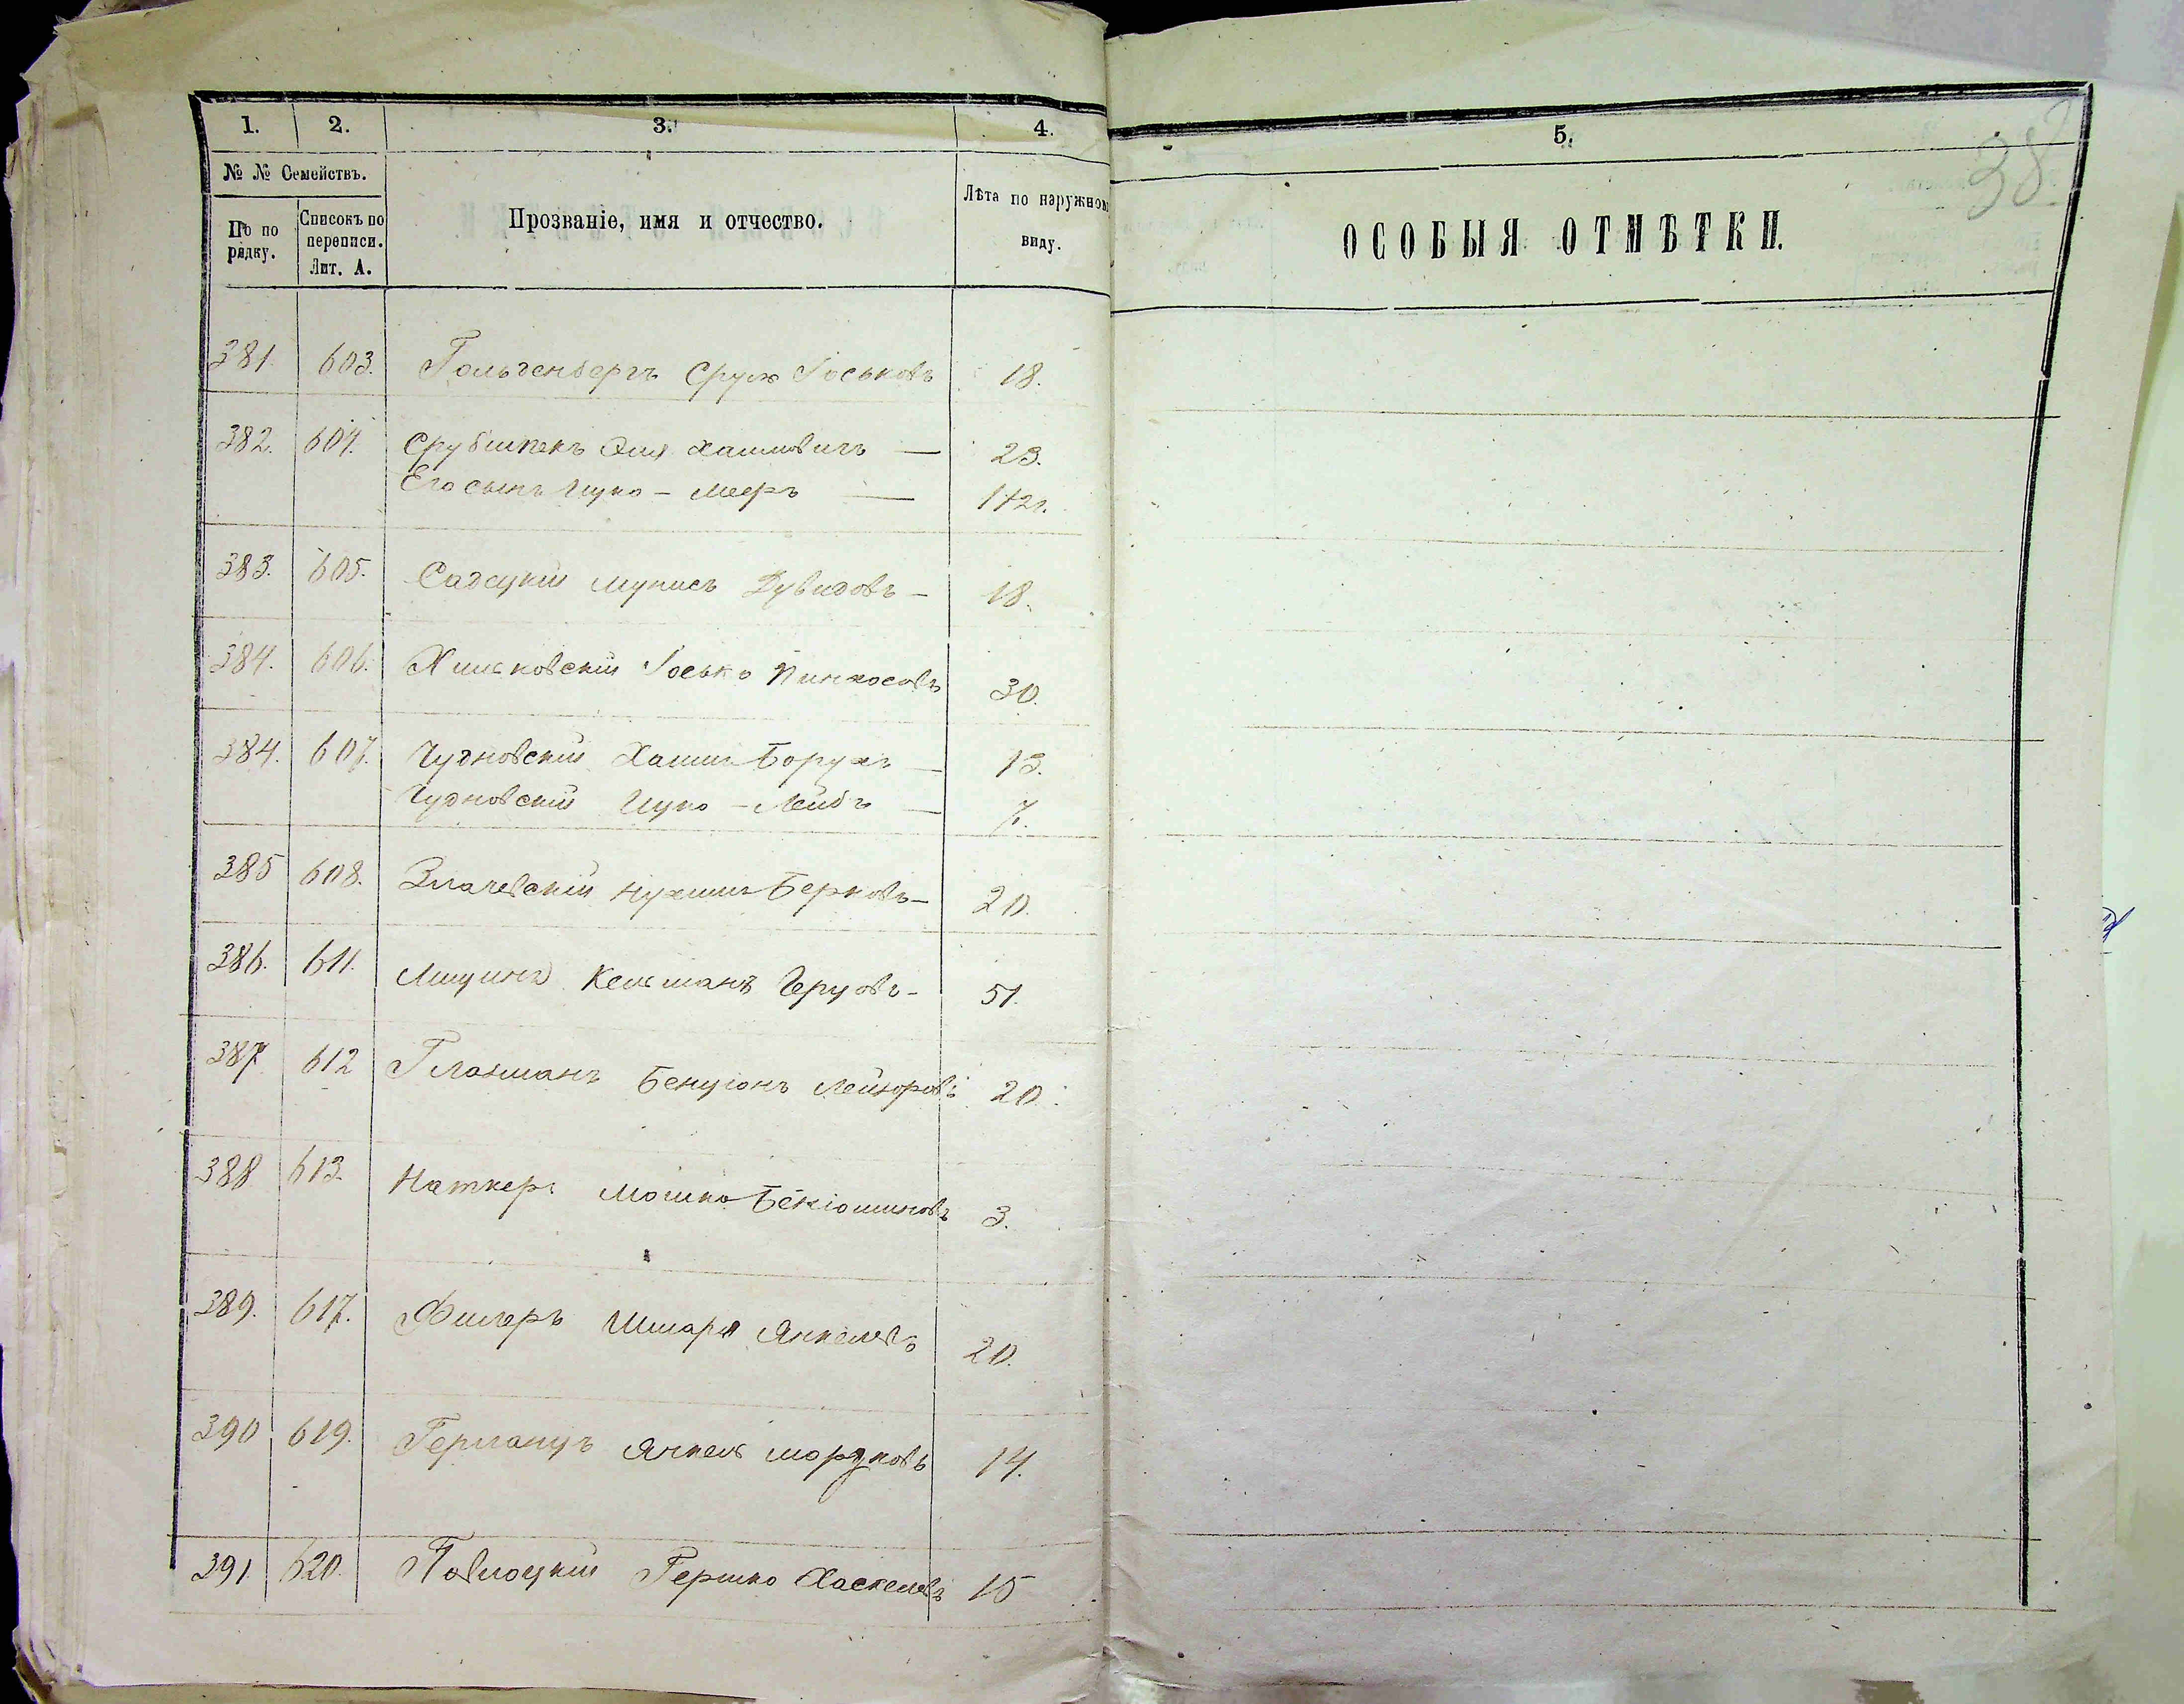 1. 2. 3. 4. 5.
38
№ № Семействъ.
По по рядку.
Списокъ по переписи. Лит. А.
Прозваніе, имя и отчество.
Лѣта по наружном виду.
ОСОБЫЯ ОТМѢТКИ.
381. 603. Гольденбергъ Сруль Іоськовъ 18.
382. 604. Хаимовичъ — 23.
Его сынъ Ицко - Мееръ — 1 1/2 г.
383. 605. Садецкій Мунисъ Дувидовъ - 18.
384. 606. Хильковскій Іосько Пинхосовъ 30.
384. 607. Чудновскій Хаимъ Борухъ — 13.
Чудновскій Ицко - Лейбъ — 7.
385 608. Злачевскій Нухимъ Берковъ - 20.
386. 611. Кельманъ - 51.
387. 612 Глозманъ Бенціонъ Лейзоровъ 20.
388 613. Наткеръ Мошко Беніоминовъ 3.
389. 617. Фишеръ Шмаря Янкелевъ 20.
390 619. Германъ Янкель Мордковъ 14.
391. 620. Павлоцкій Гершко Хаскелевъ 15